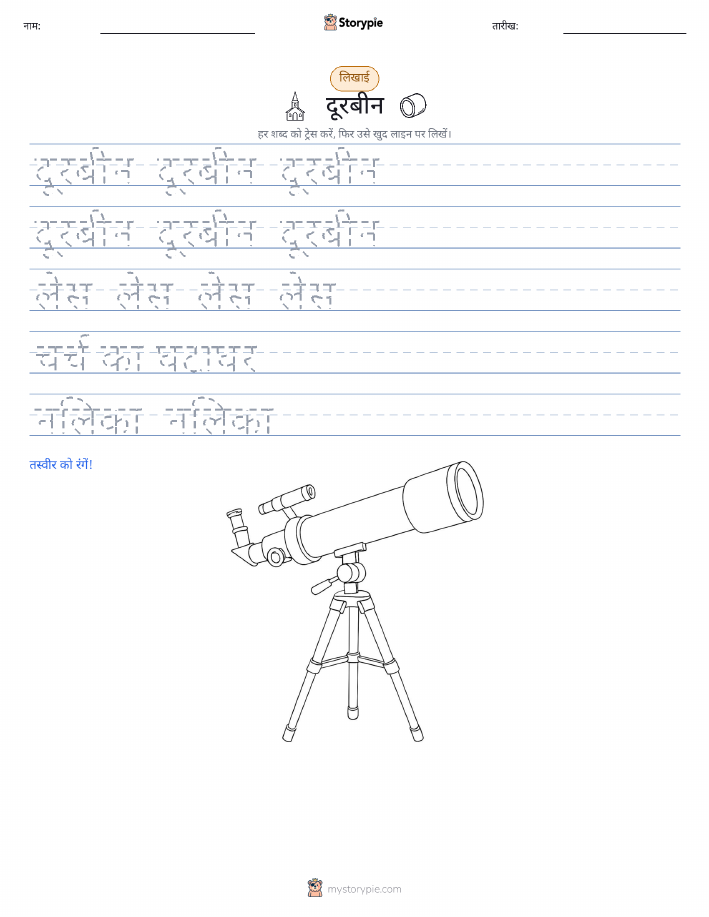 नाम:
Storypie
तारीख:
लिखाई
दूरबीन
हर शब्द को ट्रेस करें, फिर उसे खुद लाइन पर लिखें।
दूरबीन दूरबीन दूरबीन
दूरबीन दूरबीन दूरबीन
लेंस लेंस लेंस लेंस
चर्च का घंटाघर
नलिका नलिका
तस्वीर को रंगें!
mystorypie.com